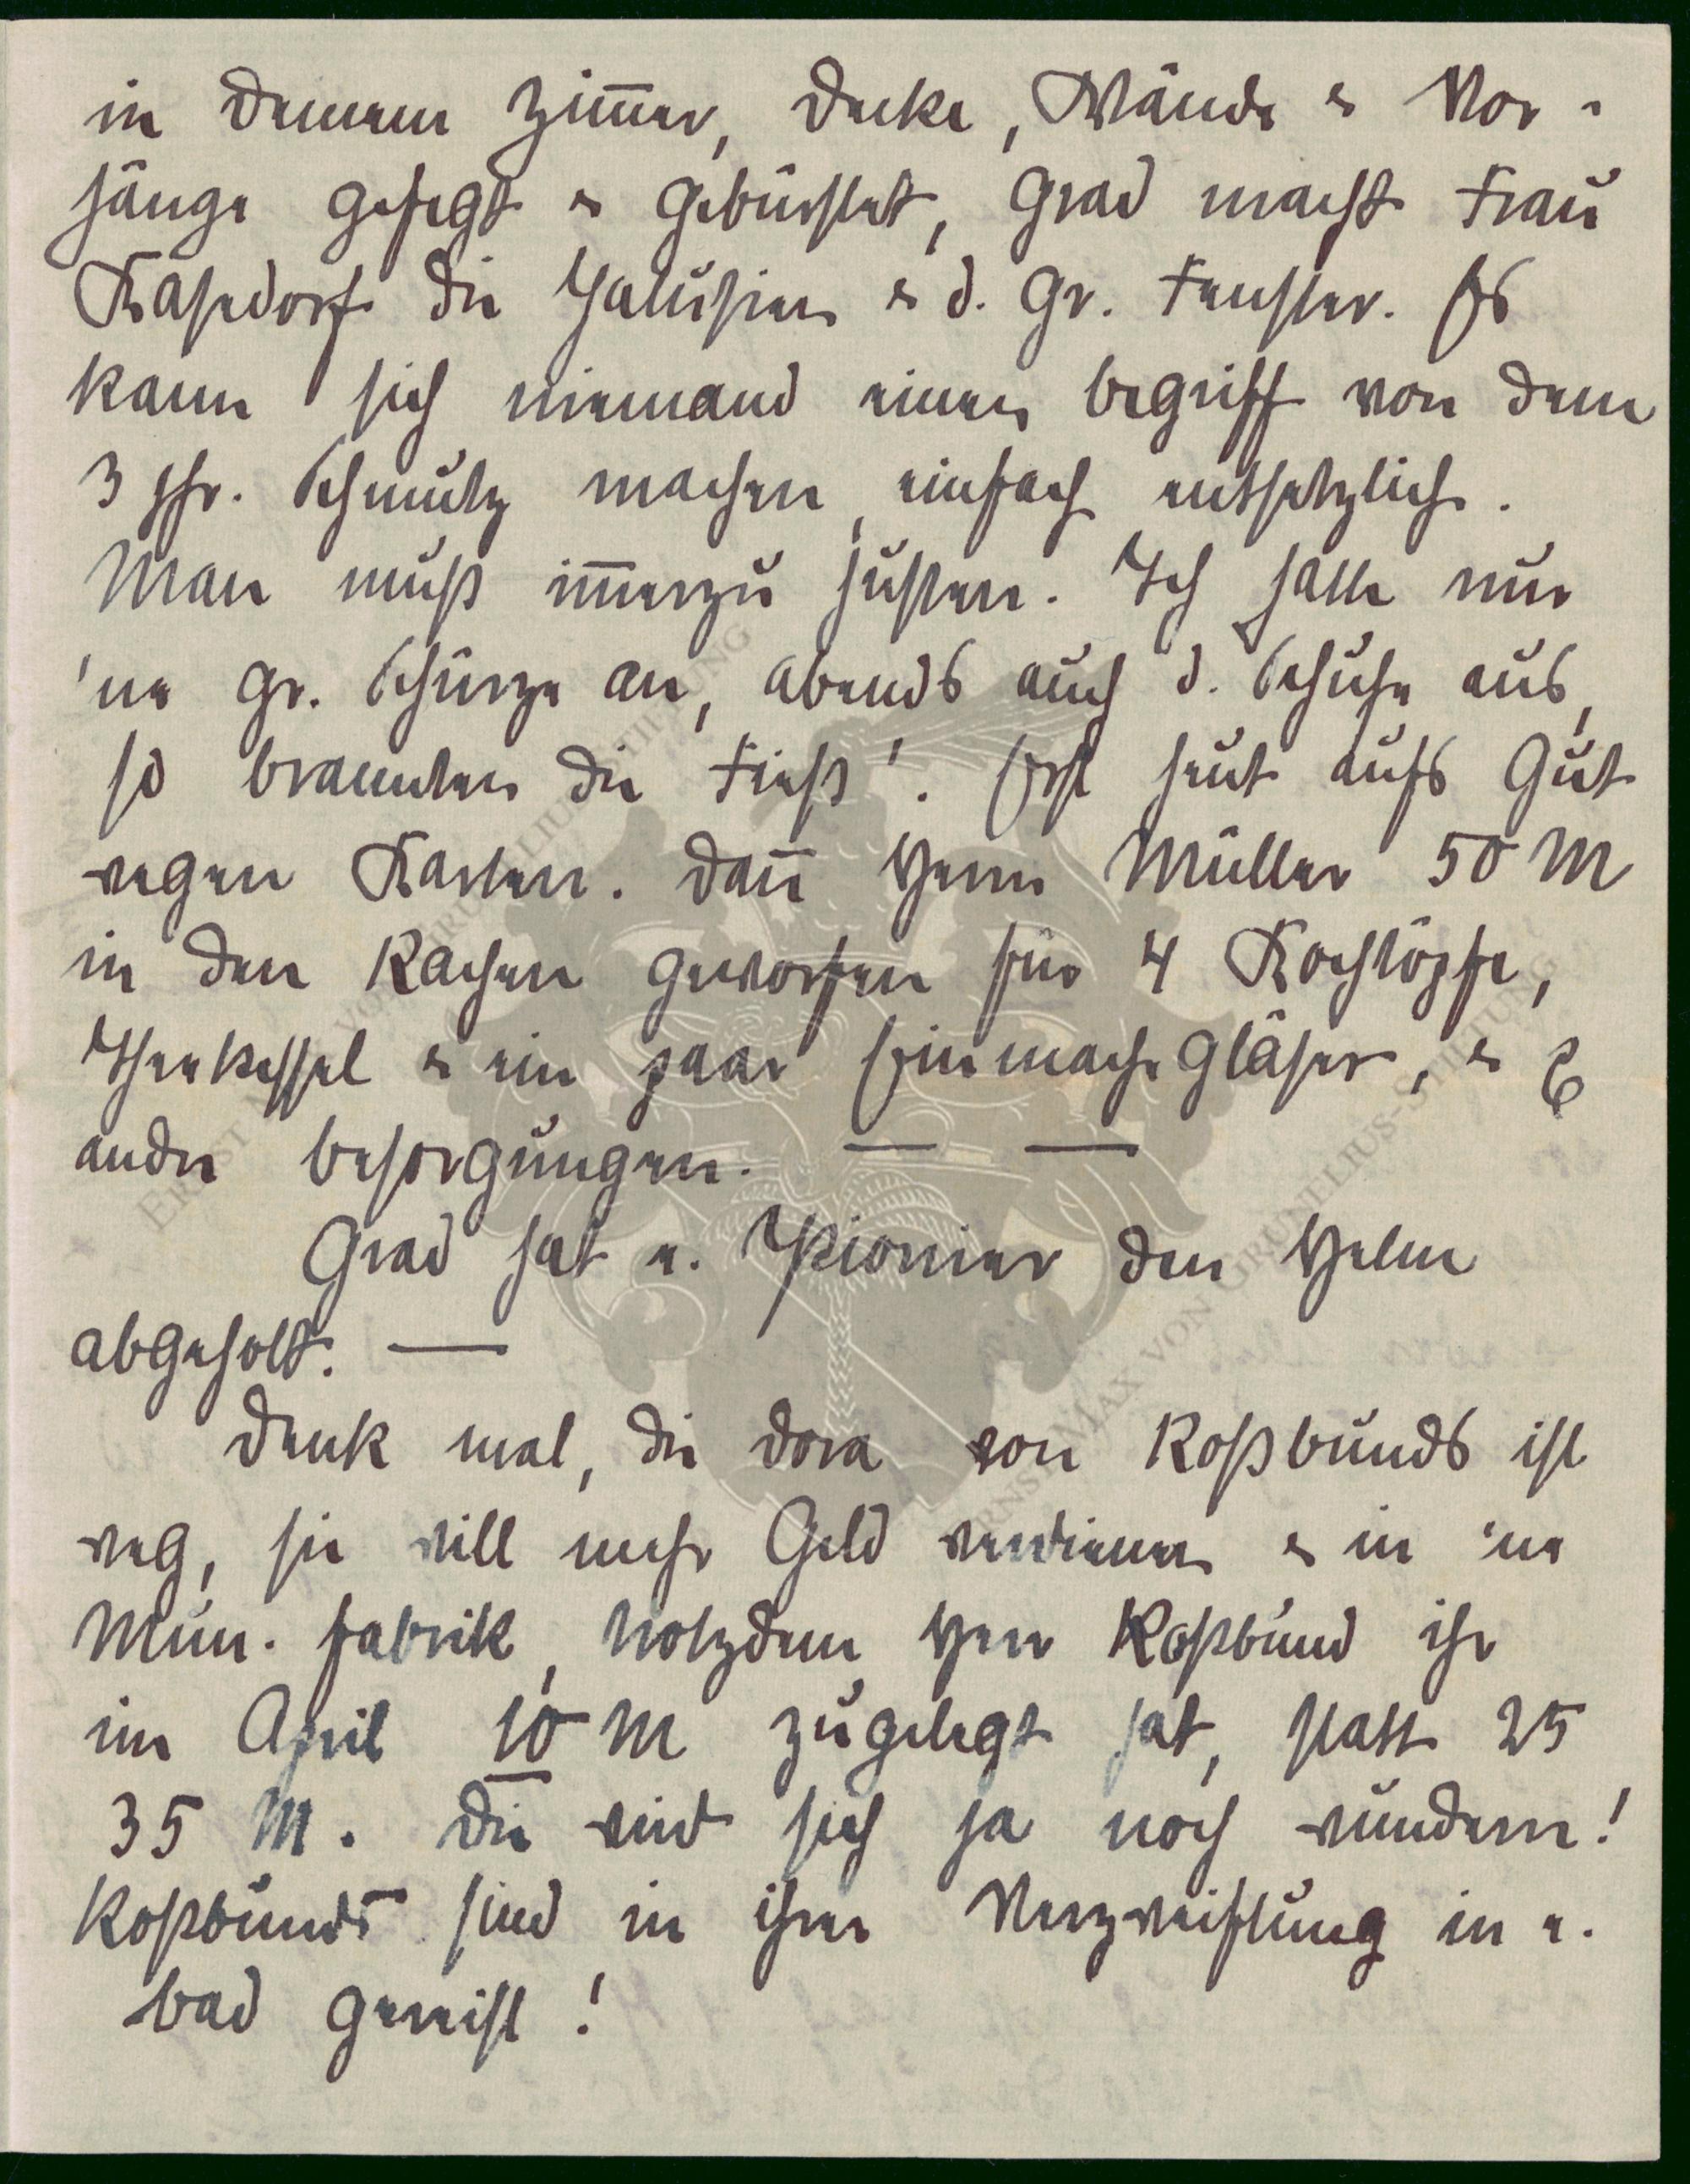 in Deinem Zim̅er, Decke, Wände & Vor-
hänge gefegt & gebürstet, Grad macht Frau
Kasdorf die Jalusien & d. gr. Fenster. Es
kann sich niemand einen begriff von dem
3 jhr. Schmutz machen, einfach entsetzlich.
Man muß im̅erzu husten. Ich hatte nur
'ne gr. Schürze an, abends auch d. Schuhe aus,
so brannten die Fieß'. Erst heut aufs Gut
wegen Karten. Dan̅ Herrn Müller 50 M
in den Rachen geworfen für 4 Kochtöpfe,
Theekessel & ein paar Einmachegläser, &
andre besorgungen. — —
Grad hat e. Pionier den Helm
abgeholt. —
Denk mal, die Dora von Roßbunds ist
weg, sie will mehr Geld verdienen & in 'ne
Mun. fabrik, trotzdem Herr Roßbund ihr
im April 10 M zugelegt hat, statt 25
35 M. Die wird sich ja noch wundern!
Roßbunds sind in ihrer Verzweiflung in e.
bad gereist!
ERNST MAX VON GRUNELIUS-STIFTUNG
ERNST MAX VON GRUNELIUS-STIFTUNG